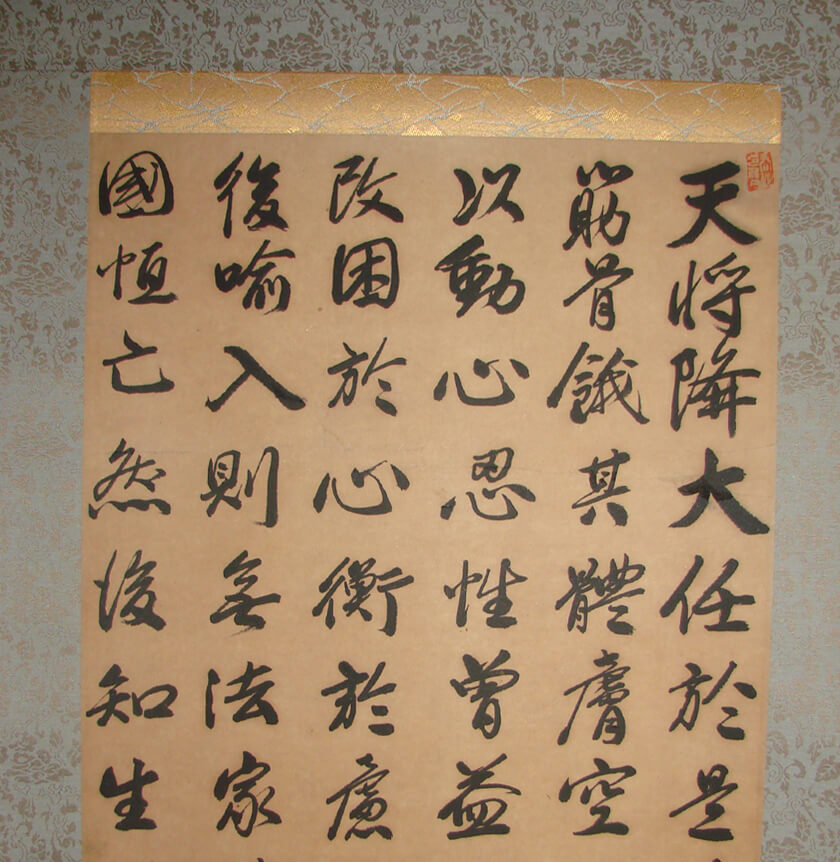 天将降大任於是
筋骨餓其體膚空
以動心忍性曾益
改困於心衡於慮
後喻入則無法家
國恒亡然後知生